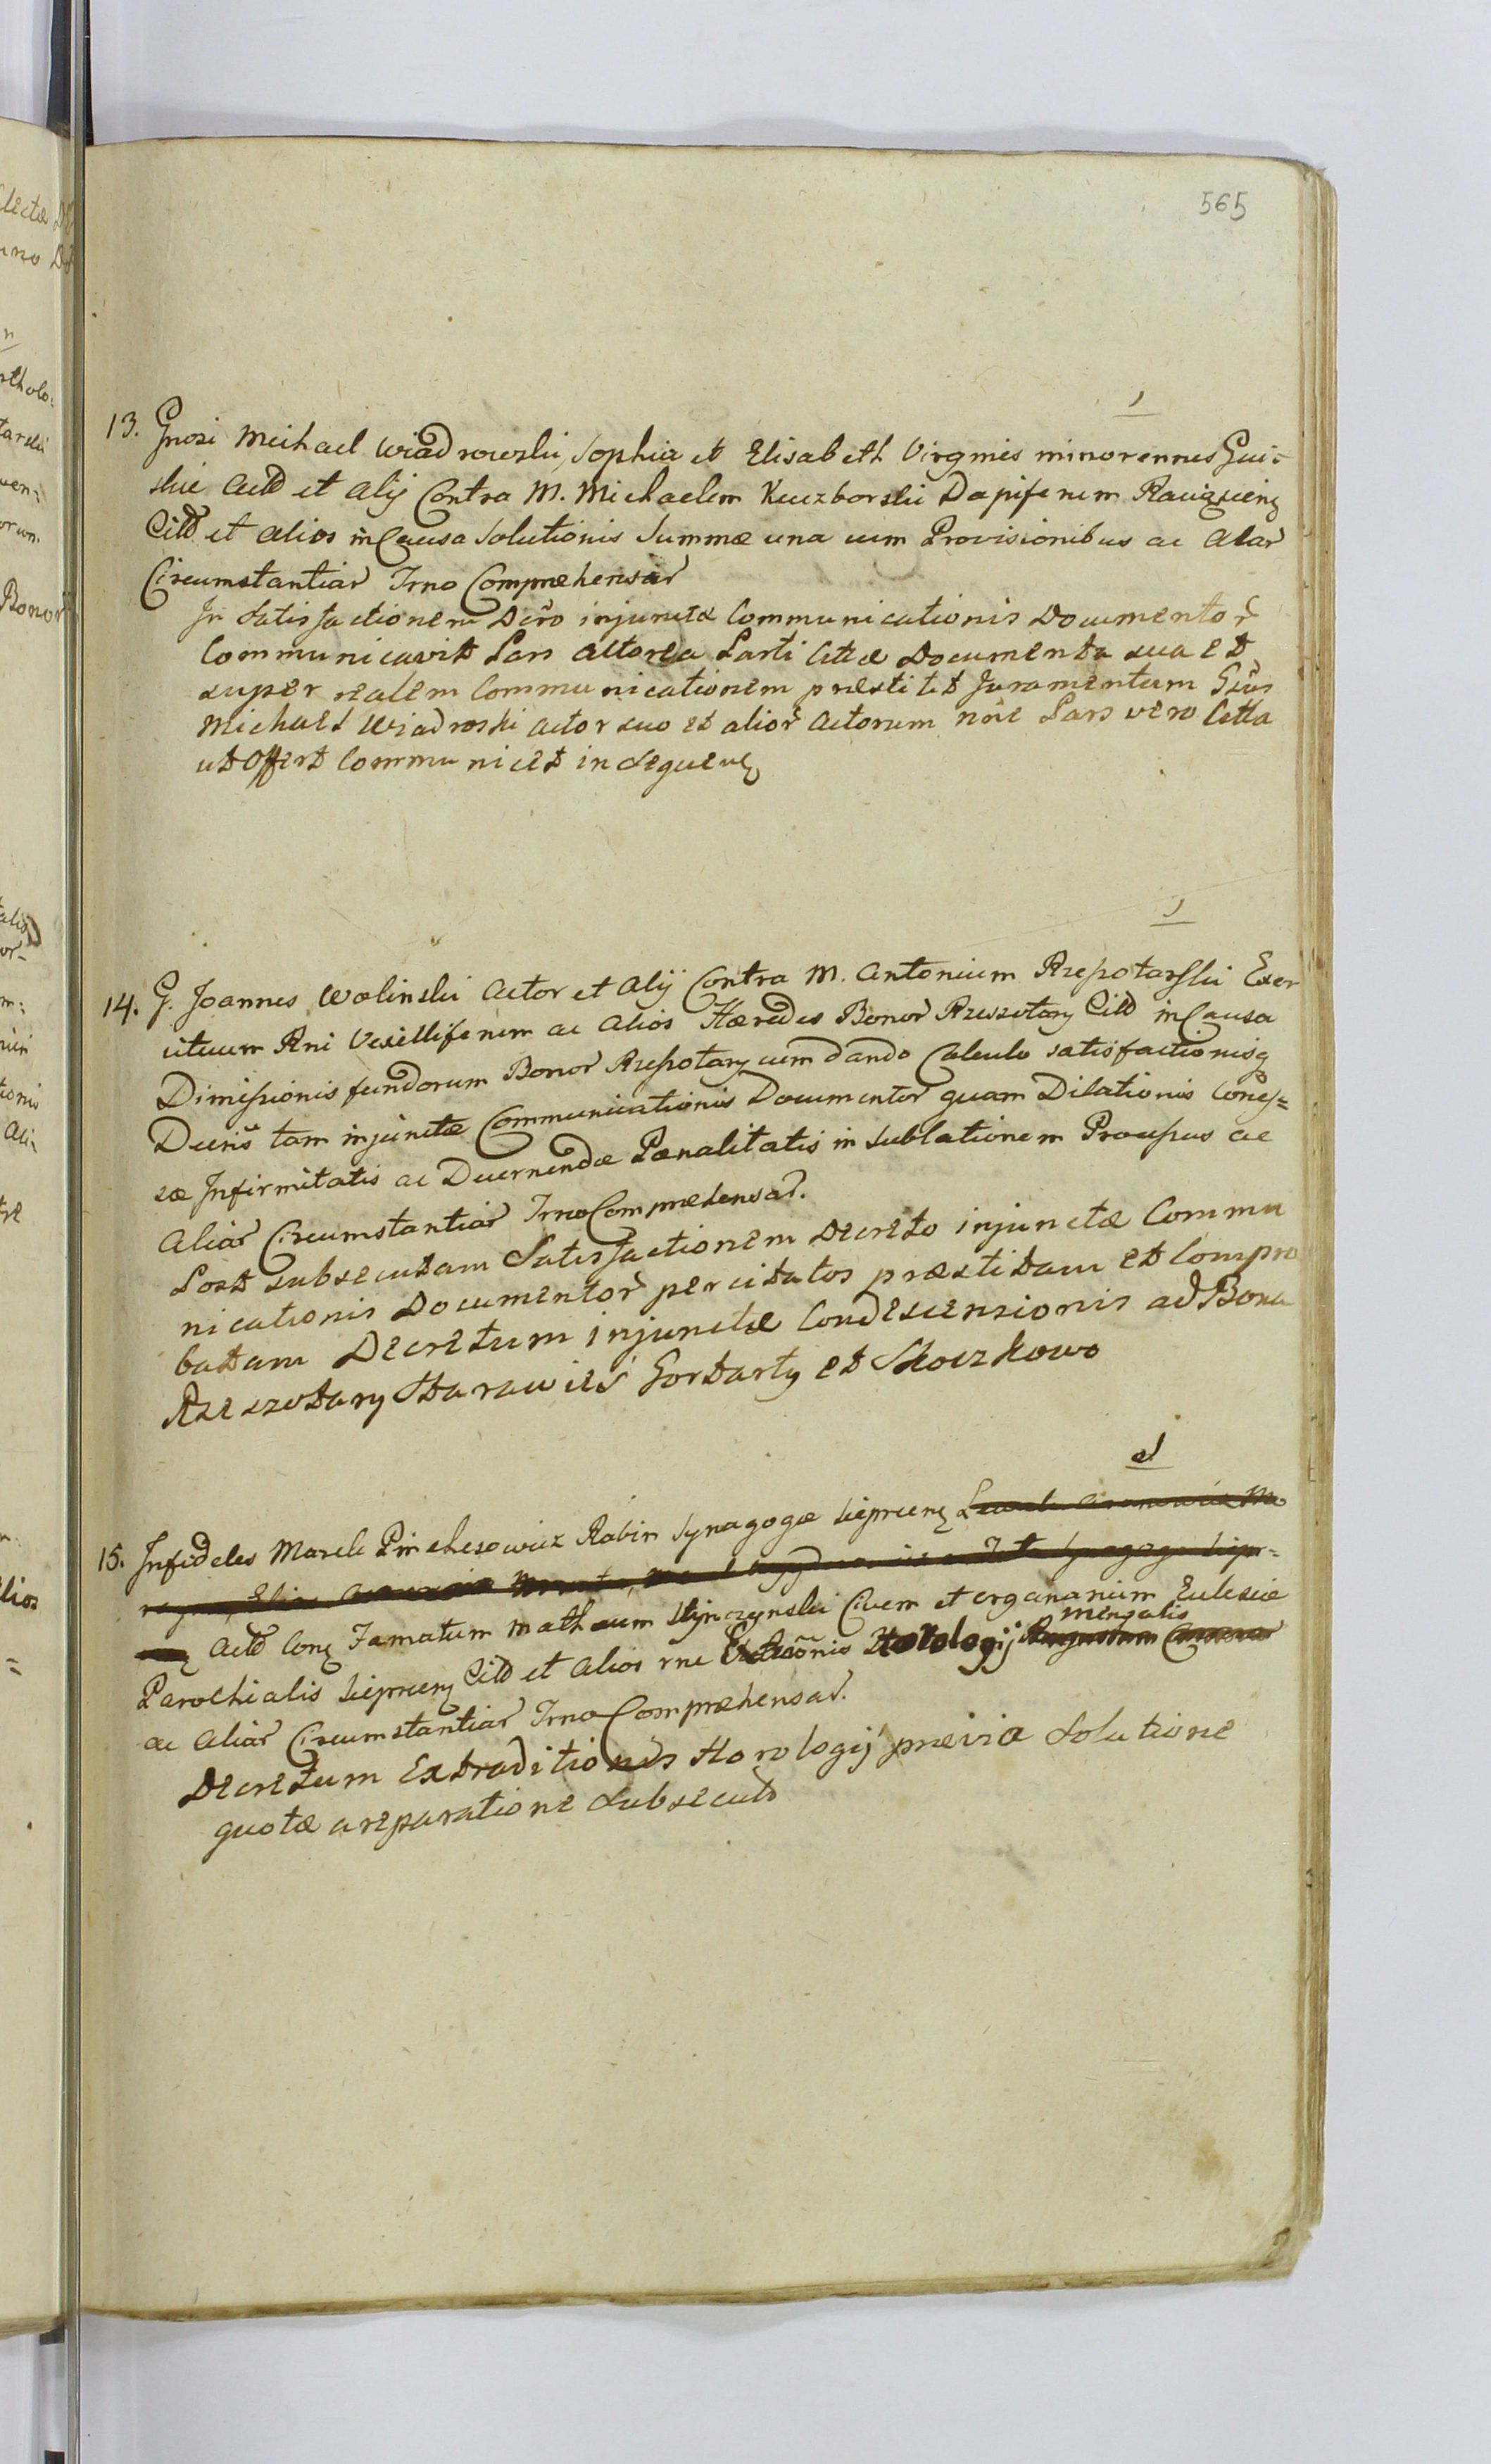 565
13. Gnosi Meihael Wiadrowski, Sophia et Elisabeth Virgines minorennes Gui=
skie Actt et Alij Contra M. Michaelem Kuczborski Dapiferum
Citt et alios in Causa Solutionis Summæ una cum Provisionibus ac Alar
Circumstantiar Trno Comprehensar
In Satisfactionem Decro injunctæ Communicationis Documentor
Communicavit Pars Actorea Parti Cittæ Documenta sua et
super realem Communicationem præstitit Juramentum Gsus
Michael Wiadroski actor suo et alior Actorum noie Pars vero Citta
ut offert Communicet in sequenz
14. G. Joannes Wolinski Actor et Alij Contra M. Antonium Rzeszotarski Exer
cituum Rni Vexilliferum ac Alios Hæredes Bonor Rzeszotary Citt in Causa
Dimissionis fundorum Bonor Rzeszotary cum dando Calculo satisfactionisq
Decris tam injunctæ Communicationis Documentor quam Dilationis Conces=
sæ Infirmitatis ac Decernendæ Pænalitatis in sublationem Processus ac
Aliar Circumstantiar Trno Comprehensar.
Post subsecutam Satisfactionem Decreto injunctæ Commu
nicationis Documentor per citatos præstitam et Compro
batam Decretum injunctæ Condescensionis ad Bona
Rzeszotary Starawieś Gortarty et Skoczkowo
15. Infideles Marek Pinchesowicz Rabin Synagogæ Sieprcenz
Actt Conz Famatum Mathæum Stynczynski Civem et organarium Eclesiæ
Parochialis Sieprcenz Citt et Alios rne Horologij mensalis
ac Aliar Circumstantiar Trno Comprehensar.
Decretum Extraditionis Horologij prævia Solutione
quotæ a reparatione Subsecut